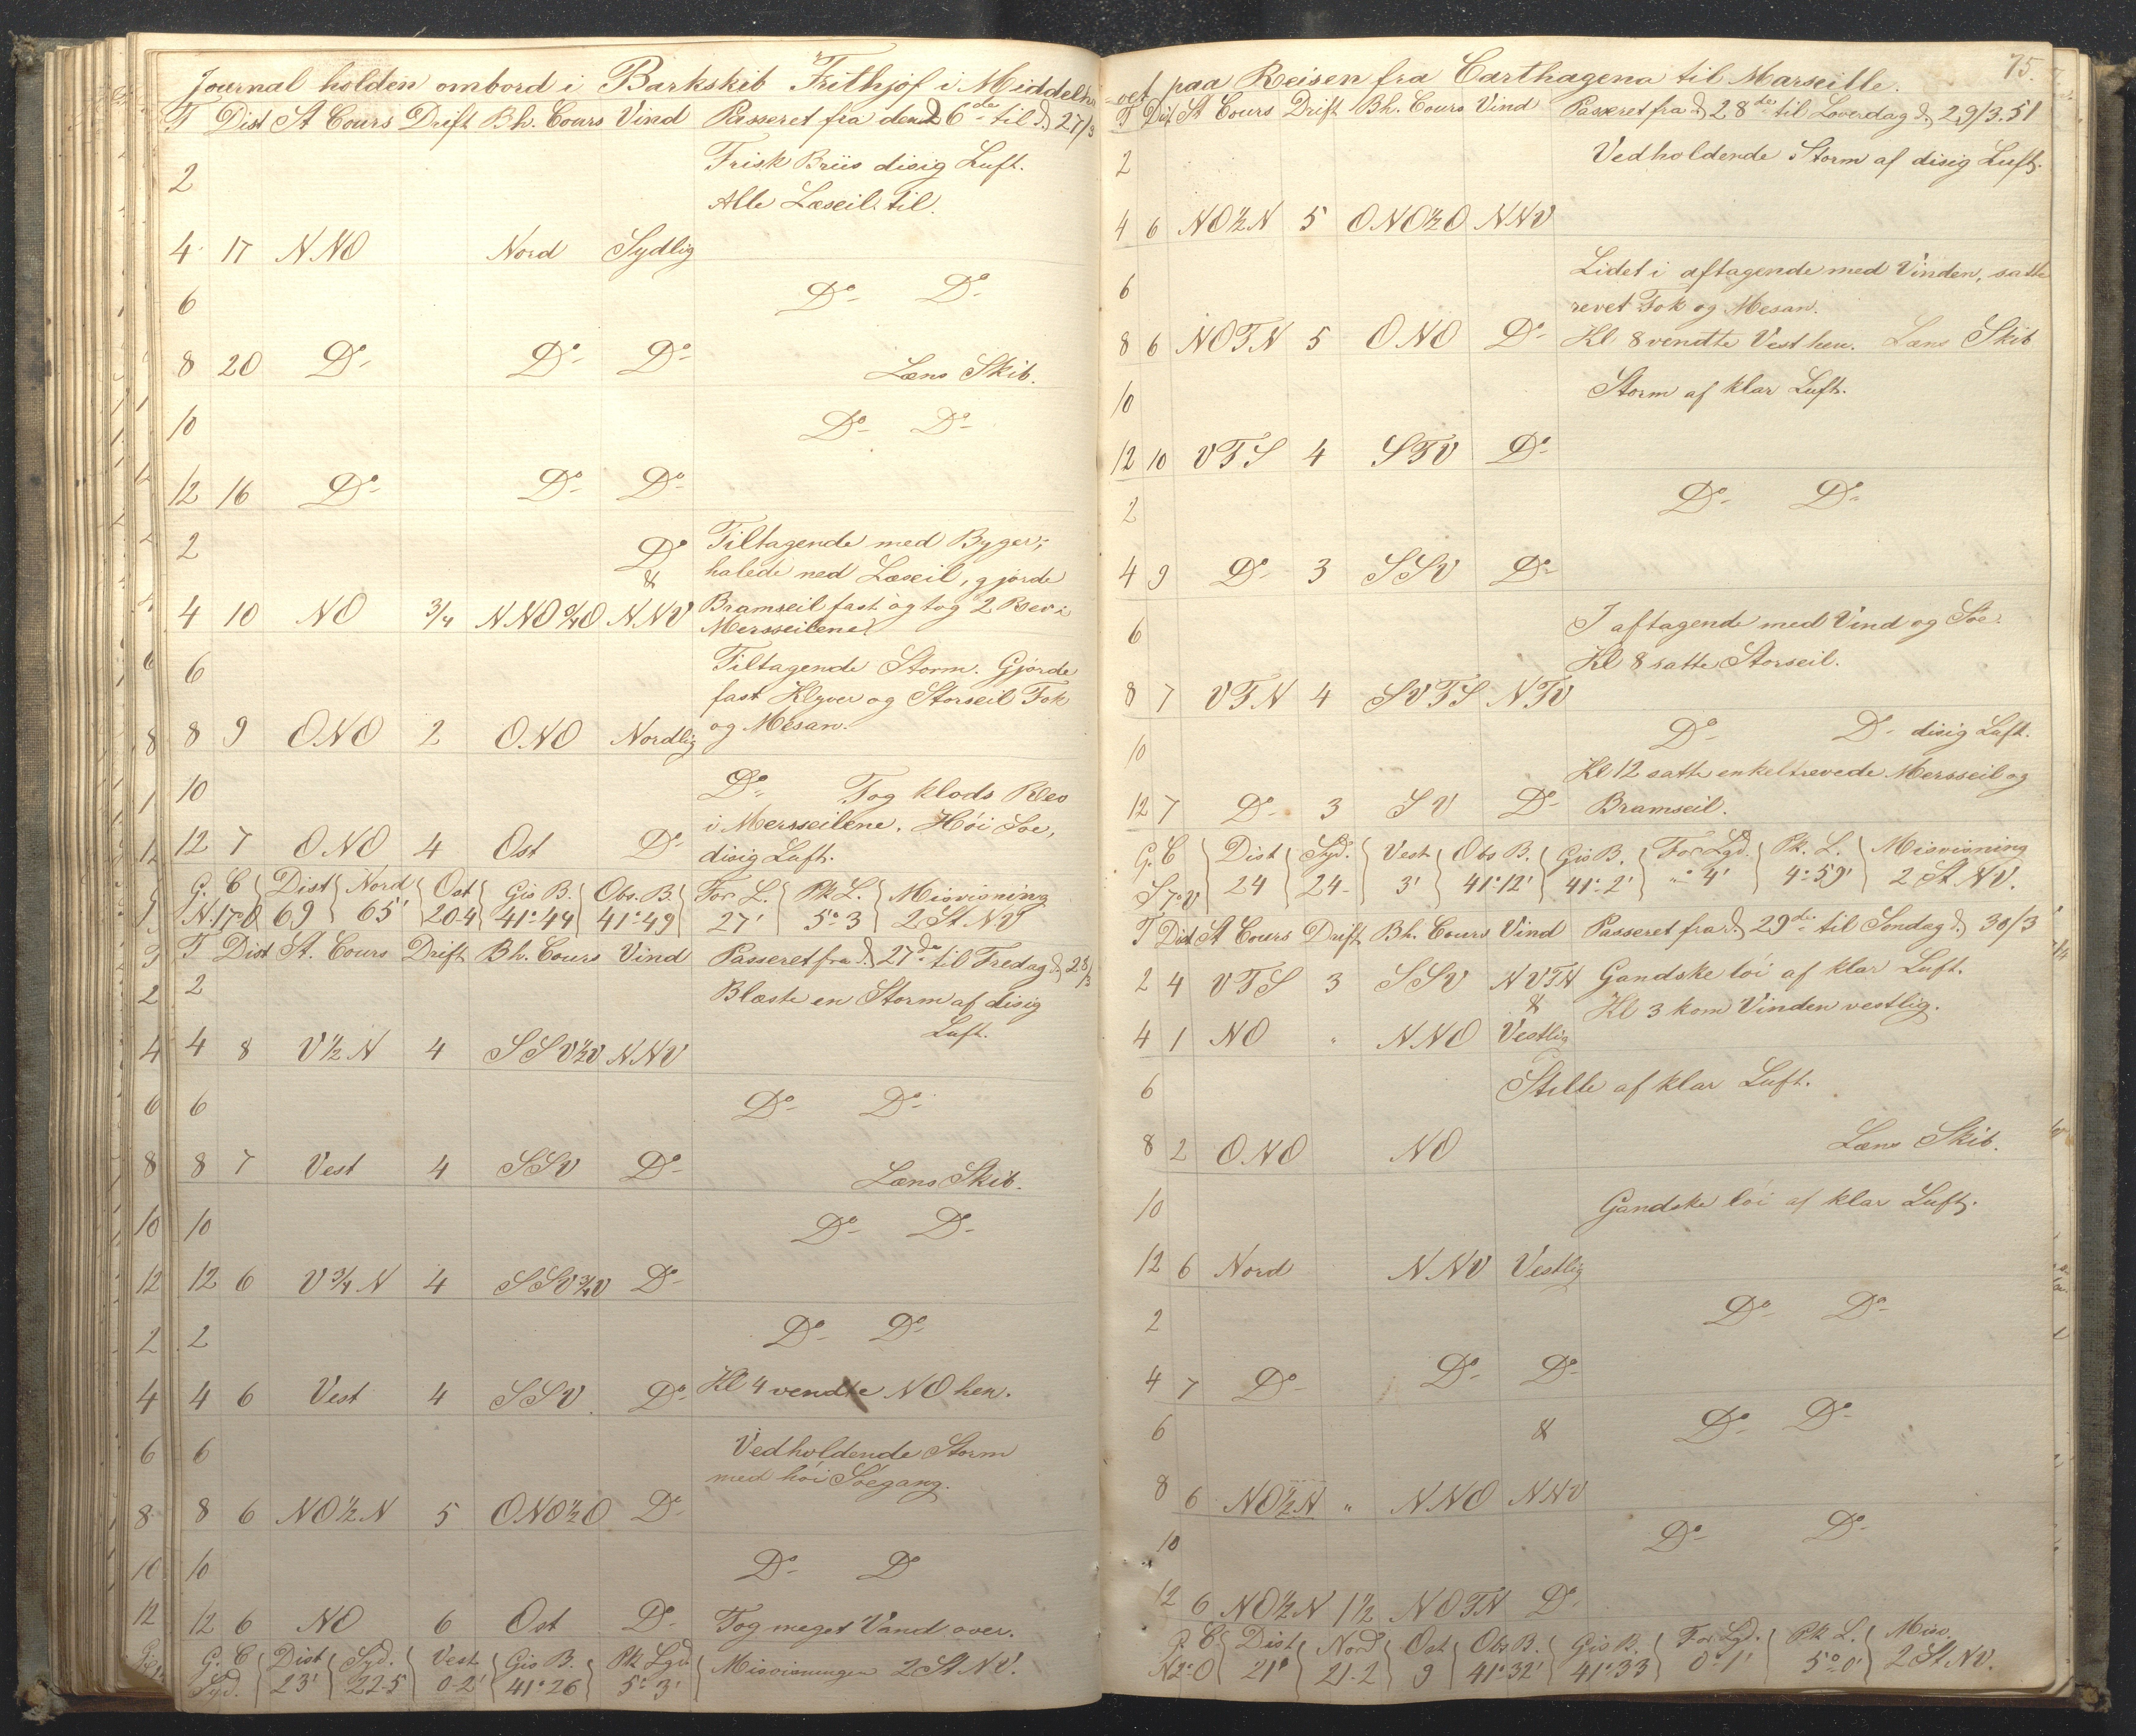 Journal holden ombord i Barkskib Frithjof i Middelha
T Dist St Cours Drift Bh. Cours Vind Passeret fra den 26de til d. 27/3
Frisk Briis disig Luft.
2
Alle Læseil til.
4 17 NNO Nord Sydlig
6 Do Do
8 20 Do Do Do Læns Skib.
10 Do Do
12 16 Do Do Do
2 Do Tiltagende med Byger;
& halede ned Læseil, gjorde
4 10 NO 3/4 NNO 3/4 O NNV Bramseil fast og tog 2 Rev i
Mersseilene.
6 Tiltagende Storm. Gjorde
fast Klyver og Storseil Fok
8 9 ONO 2 ONO Nordlig og Mesan.
10 Do Tog klods Rev
i Mersseilene. Höi Söe,
12 7 ONO 4 Ost Do disig Luft.
G. C Dist Nord Ost Gis B. Obs. B. For L. Pk L. Misvisning
N.17°O 69 65' 20.4 41°44 41°49 27' 5°3 2 St NV
T Dist St. Cours Drift Bh. Cours Vind Passeret fra d. 27de til Fredag d. 28/3
2 Blæste en Storm af disig
Luft.
4 8 V 1/2 N 4 SSV 1/2 V NNV
6 Do Do
8 7 Vest 4 SSV Do Læns Skib.
10 Do Do
12 6 V 3/4 N 4 SSV 3/4 V Do
2 Do Do
4 6 Vest 4 SSV Do Kl 4 vendte NO hen.
6 Vedholdende Storm
med höi Söegang.
8 6 NO 1/2 N 5 ONO 1/2 O Do
10 Do Do
12 6 NO 6 Ost Do Tog meget Vand over.
G. C Dist Syd. Vest Gis B. Pk Lgd. Misvisningen 2 St NV.
Syd. 23' 22-5 0-2' 41°26 5°3'
vet paa Reisen fra Carthagena til Marseille. 75.
T Dist St Cours Drift Bh. Cours Vind Passeret fra d. 28de til Löverdag d. 29/3.51
2 Vedholdende Storm af disig Luft.
4 6 NO 1/2 N 5 ONO 1/2 O NNV
6 Lidet i aftagende med Vinden, satte
revet Fok og Mesan.
8 6 NOTN 5 ONO Do Kl. 8 vendte Vest hen. Læns Skib
10 Storm af klar Luft.
12 10 VTS 4 STV Do
2 Do Do
4 9 Do 3 SSV Do
6 I aftagende med Vind og Söe.
Kl 8 satte Storseil.
8 7 VTN 4 SVTS NTV
10 Do Do disig Luft.
Kl 12 satte enkeltrevede Mersseil og
12 7 Do 3 SV Do Bramseil.
G. C Dist Syd. Vest Obs B. Gis B. For Lgd. Pk. L. Misvisning
S 7°V 24 24- 3' 41°12' 41°2' "° 4' 4°59' 2 St NV.
T Dist St Cours Drift Bh. Cours Vind Passeret fra d. 29de til Söndag d. 30/3
2 4 VTS 3 SSV NVTN Gandske löi af klar Luft.
& Kl 3 kom Vinden vestlig.
4 1 NO " NNO Vestlig
6 Stille af klar Luft.
8 2 ONO NO Læns Skib.
10 Gandske löi af klar Luft.
12 6 Nord NNV Vestlig
2 Do Do
4 7 Do Do Do
6 & Do Do
8 6 NO 1/2 N " NNO NNV
10 Do Do
12 6 NO 1/2 N 1 1/2 NOTN Do
G. C Dist Nord Ost Obs B. Gis B. For Lgd. Pk L. Misv.
N2°O 21° 21.2 9 41°32' 41°33 0°1' 5°0' 2 St NV.